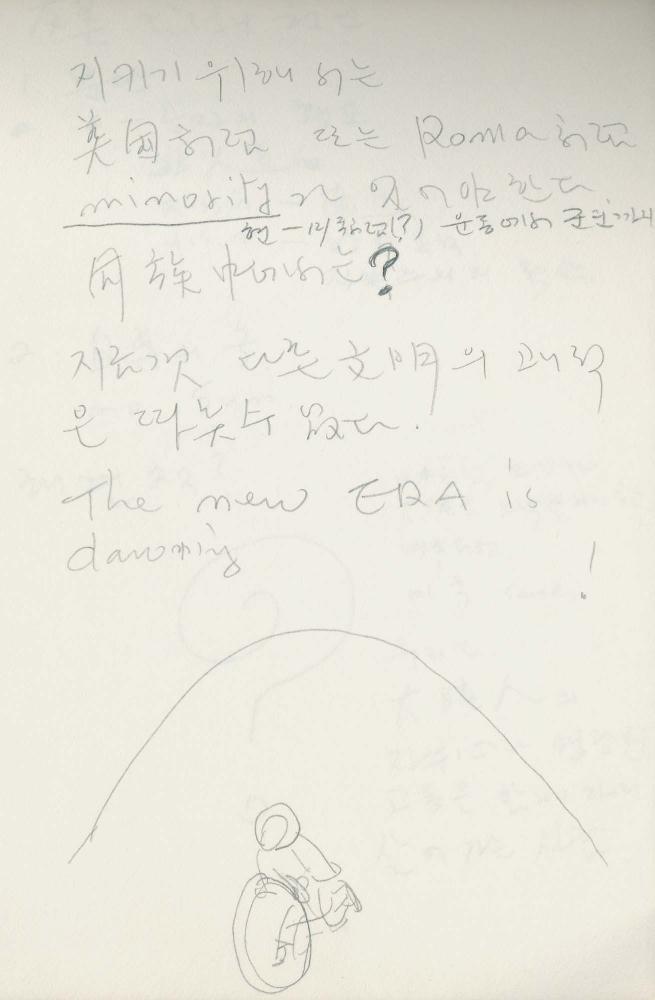 지키기 위해서는
英国처럼 또는 Roma처럼
minority가 있어야 한다.
현 운동에서
民族中에서는?
지금것 다른 文明의 괴력
은 따를수 없다.
The new ERA is
dawning !